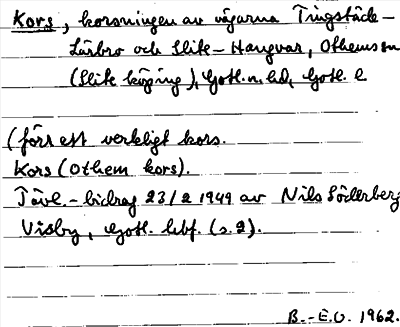 Kors, korsningen av vägarna Tingstäde –
Lärbro och Slite – Hangvar, Othems sn
(Slite köping), Gotl. n. hd, Gotl. l.
(förr ett verkligt kors.
Kors (Othem kors).
Tävl.-bidrag 23/2 1949 av Nils Söderberg
Visby, Gotl. hbf. (s. 2).
B.-E.O. 1962.